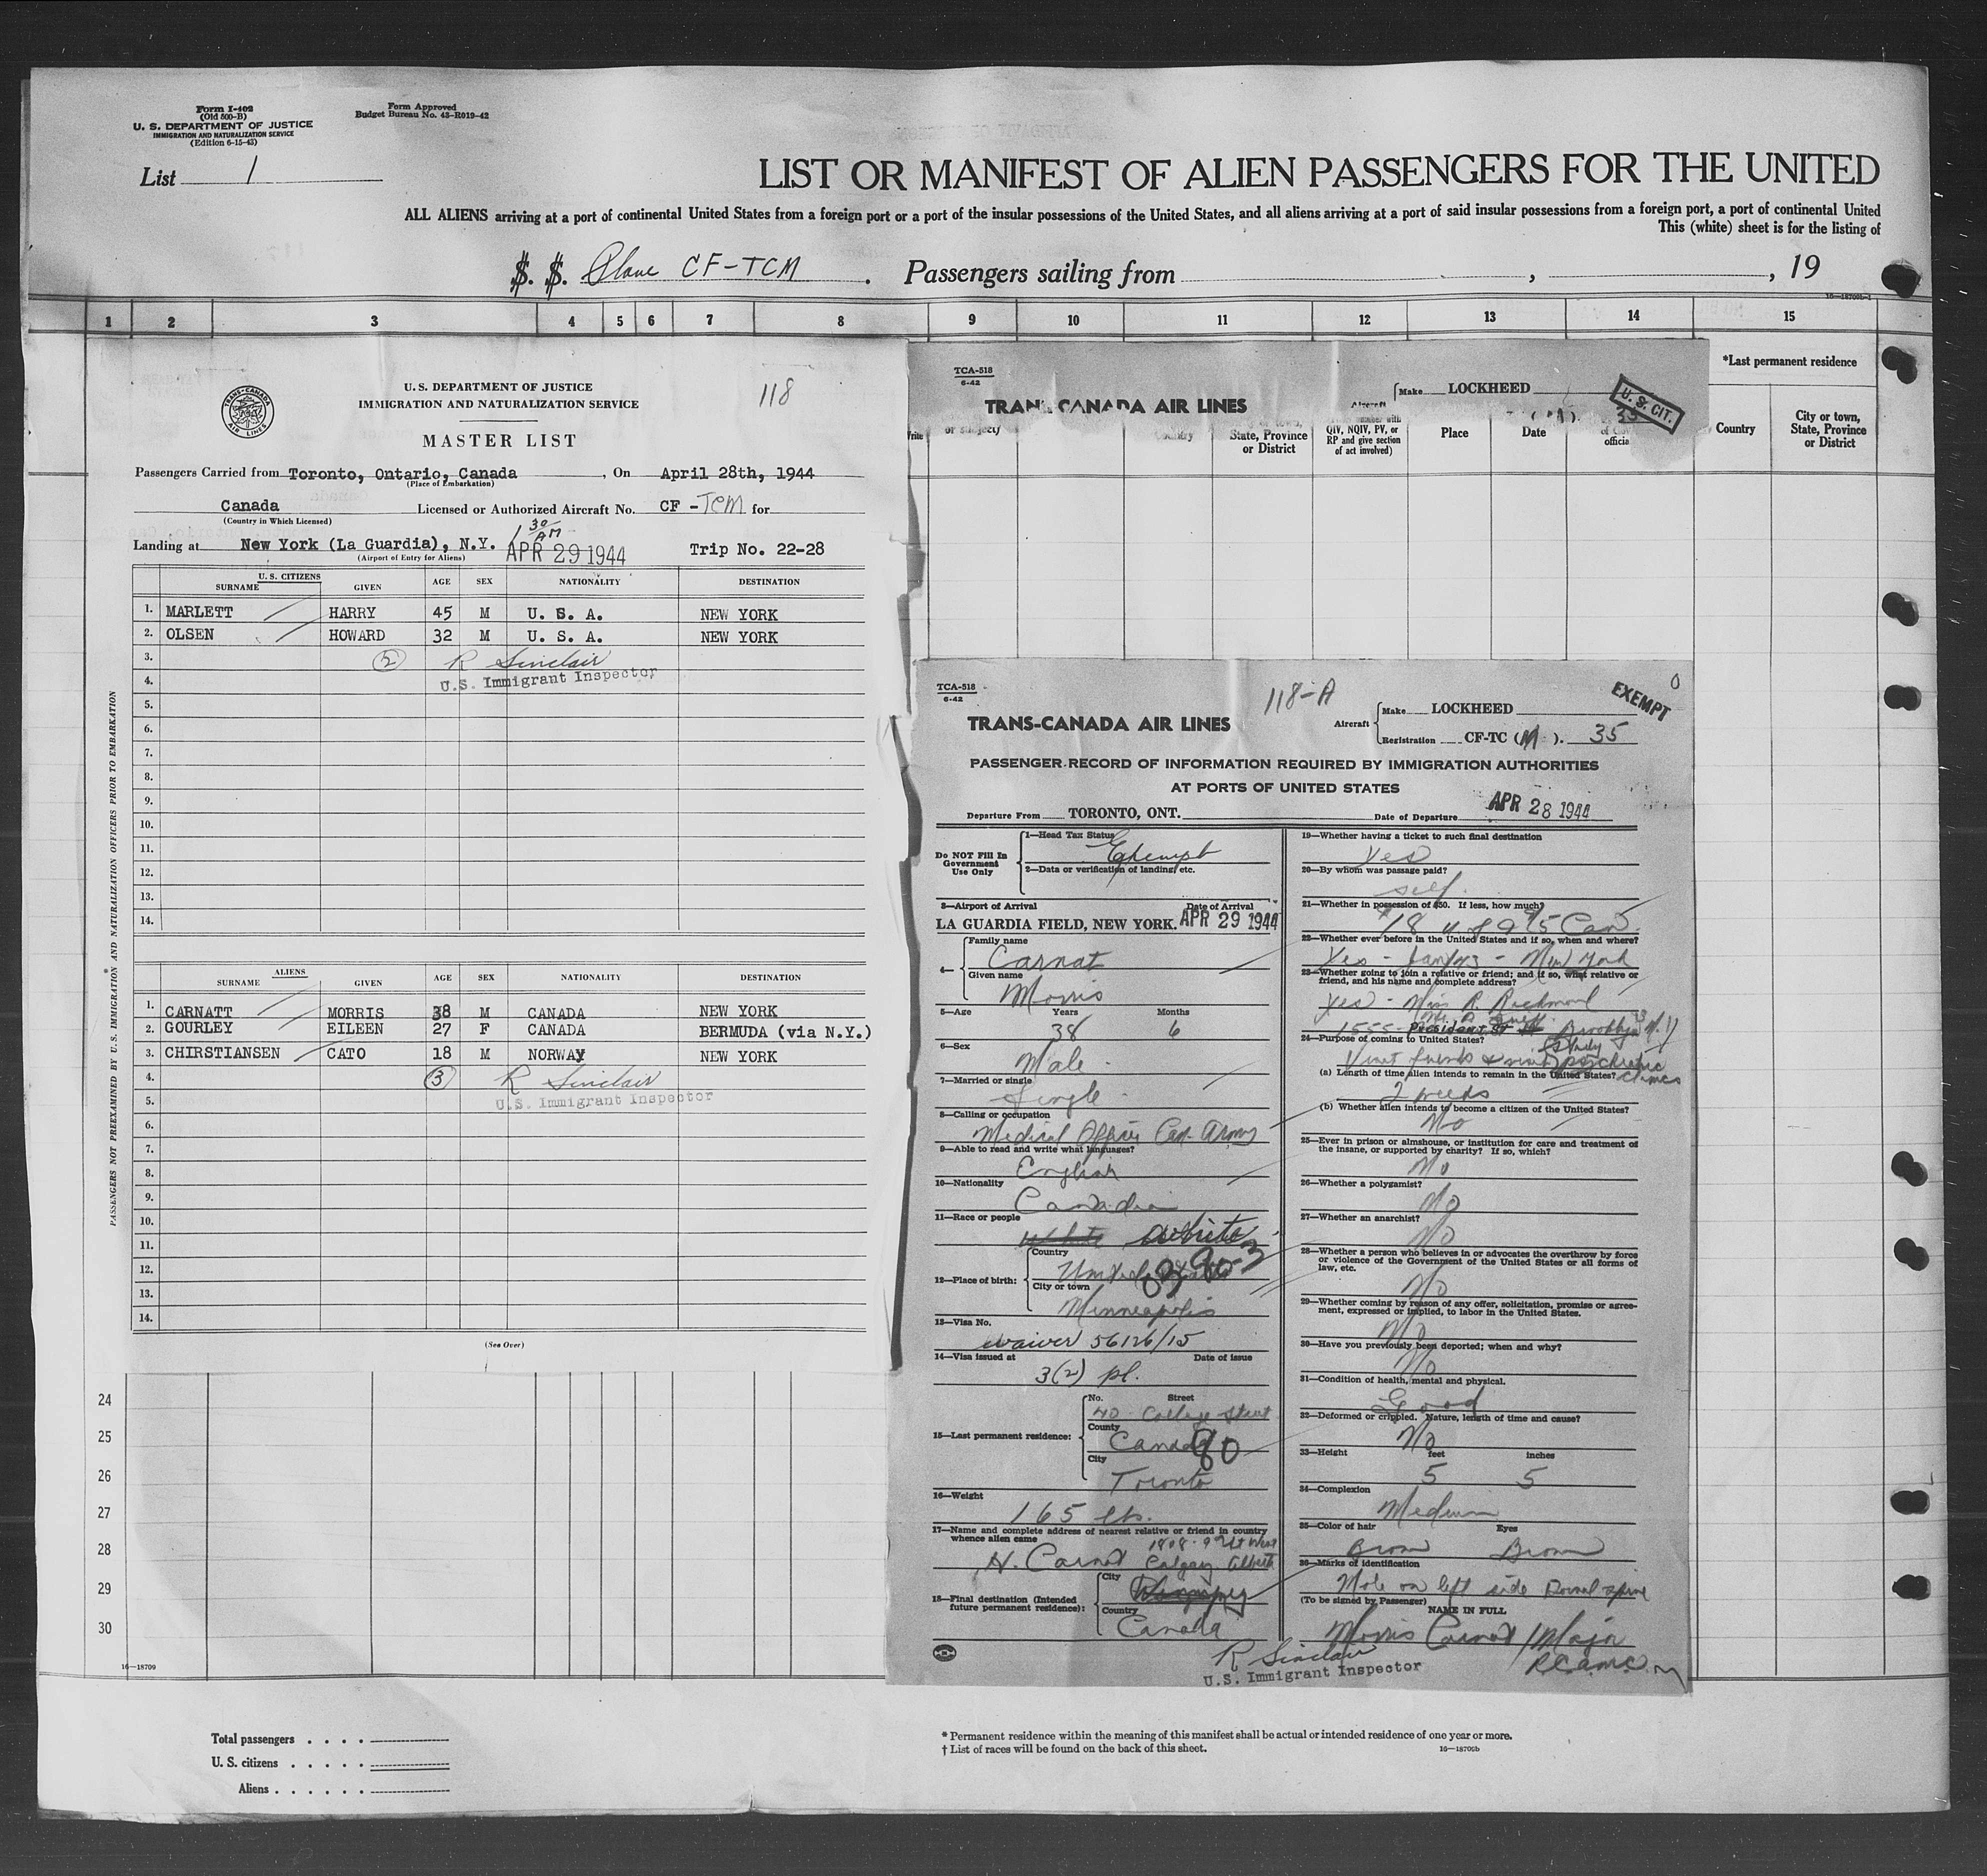 Form I-402
(Old 500-B)
U. S. DEPARTMENT OF JUSTICE
IMMIGRATION AND NATURALIZATION SERVICE
(Edition 6-15-43)
Form Approved
Budget Bureau No. 43-R019-42
List 1
LIST OR MANIFEST OF ALIEN PASSENGERS FOR THE UNITED
ALL ALIENS arriving at a port of continental United States from a foreign port or a port of the insular possessions of the United States, and all aliens arriving at a port of said insular possessions from a foreign port, a port of continental United
This (white) sheet is for the listing of
S. S. Plane CF-TCM . Passengers sailing from , , 19
1 2 3 4 5 6 7 8 9 10 11 12 13 14 15
TRANS-CANADA AIR LINES
U. S. DEPARTMENT OF JUSTICE
IMMIGRATION AND NATURALIZATION SERVICE
118
MASTER LIST
Passengers Carried from Toronto, Ontario, Canada , On April 28th, 1944
(Place of Embarkation)
Canada Licensed or Authorized Aircraft No. CF - TCM for
(Country in Which Licensed)
1 30 AM
Landing at New York (La Guardia), N.Y. APR 29 1944 Trip No. 22-28
(Airport of Entry for Aliens)
U.S. CITIZENS
SURNAME GIVEN AGE SEX NATIONALITY DESTINATION
1. MARLETT HARRY 45 M U. S. A. NEW YORK
2. OLSEN HOWARD 32 M U. S. A. NEW YORK
3. 2 R Sinclair
4. U.S. Immigrant Inspector
5.
6.
7.
8.
9.
10.
11.
12.
13.
14.
ALIENS
SURNAME GIVEN AGE SEX NATIONALITY DESTINATION
1. CARNATT MORRIS 38 M CANADA NEW YORK
2. GOURLEY EILEEN 27 F CANADA BERMUDA (via N.Y.)
3. CHIRSTIANSEN CATO 18 M NORWAY NEW YORK
4. 3 R Sinclair
5. U.S. Immigrant Inspector
6.
7.
8.
9.
10.
11.
12.
13.
14.
(See Over)
PASSENGERS NOT PREEXAMINED BY U.S. IMMIGRATION AND NATURALIZATION OFFICERS PRIOR TO EMBARKATION
24
25
26
27
28
29
30
16—18709
Total passengers
U. S. citizens
Aliens
TCA-518
6-42
TRANS-CANADA AIR LINES
Make LOCKHEED
U. S. CIT.
or subject
Country
State, Province
or District
QIV, NQIV, PV, or
RP and give section
of act involved)
Place
Date
*Last permanent residence
Country
City or town,
State, Province
or District
TCA-518
6-42
118-A
EXEMPT
TRANS-CANADA AIR LINES
Aircraft
Make LOCKHEED
Registration CF-TC (M). 35
PASSENGER RECORD OF INFORMATION REQUIRED BY IMMIGRATION AUTHORITIES
AT PORTS OF UNITED STATES
Departure From TORONTO, ONT. Date of Departure APR 28 1944
Do NOT Fill In
Government
Use Only
1—Head Tax Status
Exempt
2—Data or verification of landing, etc.
3—Airport of Arrival Date of Arrival
LA GUARDIA FIELD, NEW YORK. APR 29 1944
4—
Family name
Carnat
Given name
Morris
5—Age Years Months
38 6
6—Sex
Male
7—Married or single
Single
8—Calling or occupation
Medical Officer Can Army
9—Able to read and write what languages?
English
10—Nationality
Canadian
11—Race or people
White White
12—Place of birth:
Country
United States
City or town
Minneapolis
13—Visa No.
waiver 56126/15
14—Visa issued at Date of issue
3(2) pl.
15—Last permanent residence:
No. Street
40 College Street
County
Canada 80
City
Toronto
16—Weight
165 lbs.
17—Name and complete address of nearest relative or friend in country
whence alien came
H. Carnat Calgary Alberta
18—Final destination (Intended
future permanent residence):
City
Winnipeg
Country
Canada
19—Whether having a ticket to such final destination
Yes
20—By whom was passage paid?
self.
21—Whether in possession of $50. If less, how much?
22—Whether ever before in the United States and if so, when and where?
Yes - Jan/43 - New York
23—Whether going to join a relative or friend; and if so, what relative or
friend, and his name and complete address?
Yes - Miss R. Richmond
1555 President St Brooklyn 13 N.Y
24—Purpose of coming to United States?
Visit friends & study psychiatric clinics
(a) Length of time alien intends to remain in the United States?
2 weeks
(b) Whether alien intends to become a citizen of the United States?
No
25—Ever in prison or almshouse, or institution for care and treatment of
the insane, or supported by charity? If so, which?
No
26—Whether a polygamist?
No
27—Whether an anarchist?
No
28—Whether a person who believes in or advocates the overthrow by force
or violence of the Government of the United States or all forms of
law, etc.
No
29—Whether coming by reason of any offer, solicitation, promise or agree-
ment, expressed or implied, to labor in the United States.
No
30—Have you previously been deported; when and why?
No
31—Condition of health, mental and physical.
Good
32—Deformed or crippled. Nature, length of time and cause?
No
33—Height feet inches
5 5
34—Complexion
Medium
35—Color of hair Eyes
Brown Brown
36—Marks of identification
Mole on left side Dorsal spine
(To be signed by Passenger)
NAME IN FULL
Morris Carnat / Major
R.C.A.M.C.
R Sinclair
U.S. Immigrant Inspector
* Permanent residence within the meaning of this manifest shall be actual or intended residence of one year or more.
† List of races will be found on the back of this sheet.
16—18709b